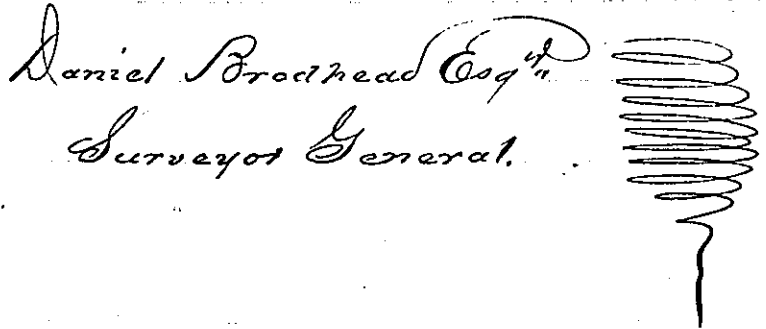 Daniel Brodhead Esqr.
Surveyor General.